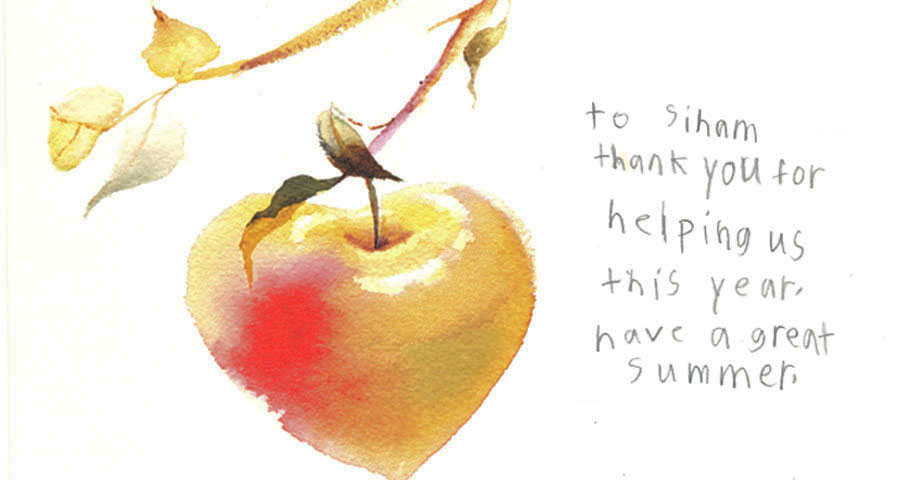 to Siham
thank you for
helping us
this year.
have a great
summer.